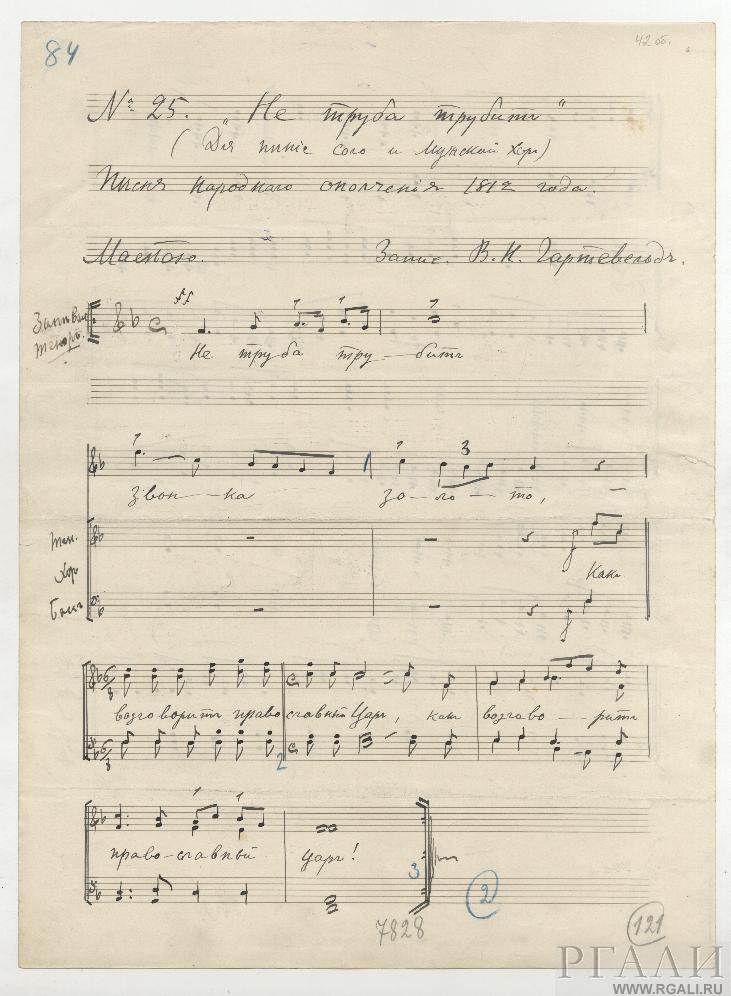 84
42 об.
№ 25. „Не труба трубитъ"
(Для пѣніе соло и Мужской Хоръ)
Пѣсня Народнаго ополченія 1812 года.
Маэстозо. Запис. В. Н. Гартевельдъ.
Запѣвало
теноръ.
ff
Не труба тру–битъ
3
звон–ка зо–ло–то,
Тен.
Хор
Басы
f
Какъ
f
6/8
возговоритъ православный Царь, какъ возгаво–ритъ
6/8
2
право–славный царь!
3
2
7828
121
РГАЛИ
WWW.RGALI.RU